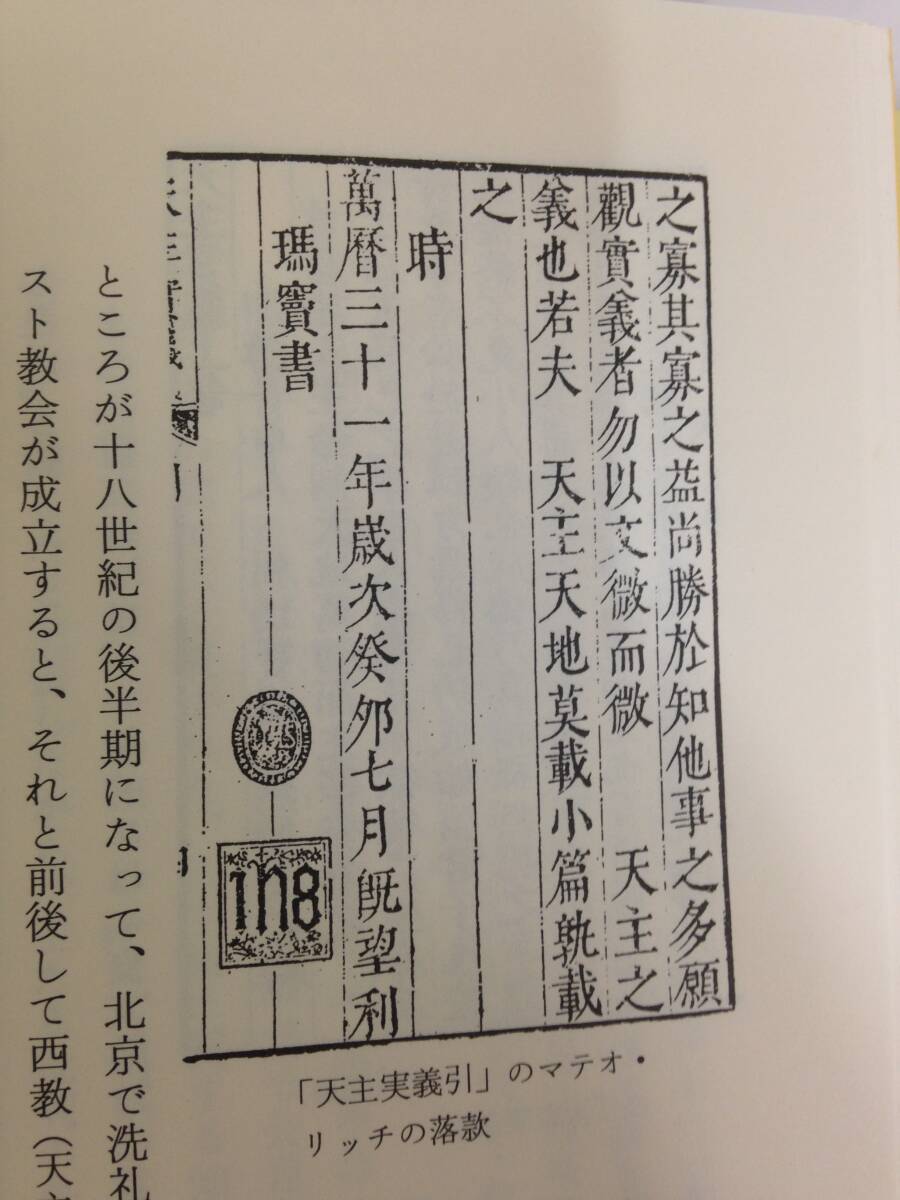 之寡其寡之益尚勝於知他事之多願
觀實義者勿以文微而微 天主之
義也若夫 天主天地莫載小篇孰載
之
時
萬曆三十一年歲次癸卯七月既望利
瑪竇書
ihs
「天主実義引」のマテオ・
リッチの落款
ところが十八世紀の後半期になって、北京で洗礼
スト教会が成立すると、それと前後して西教（天主